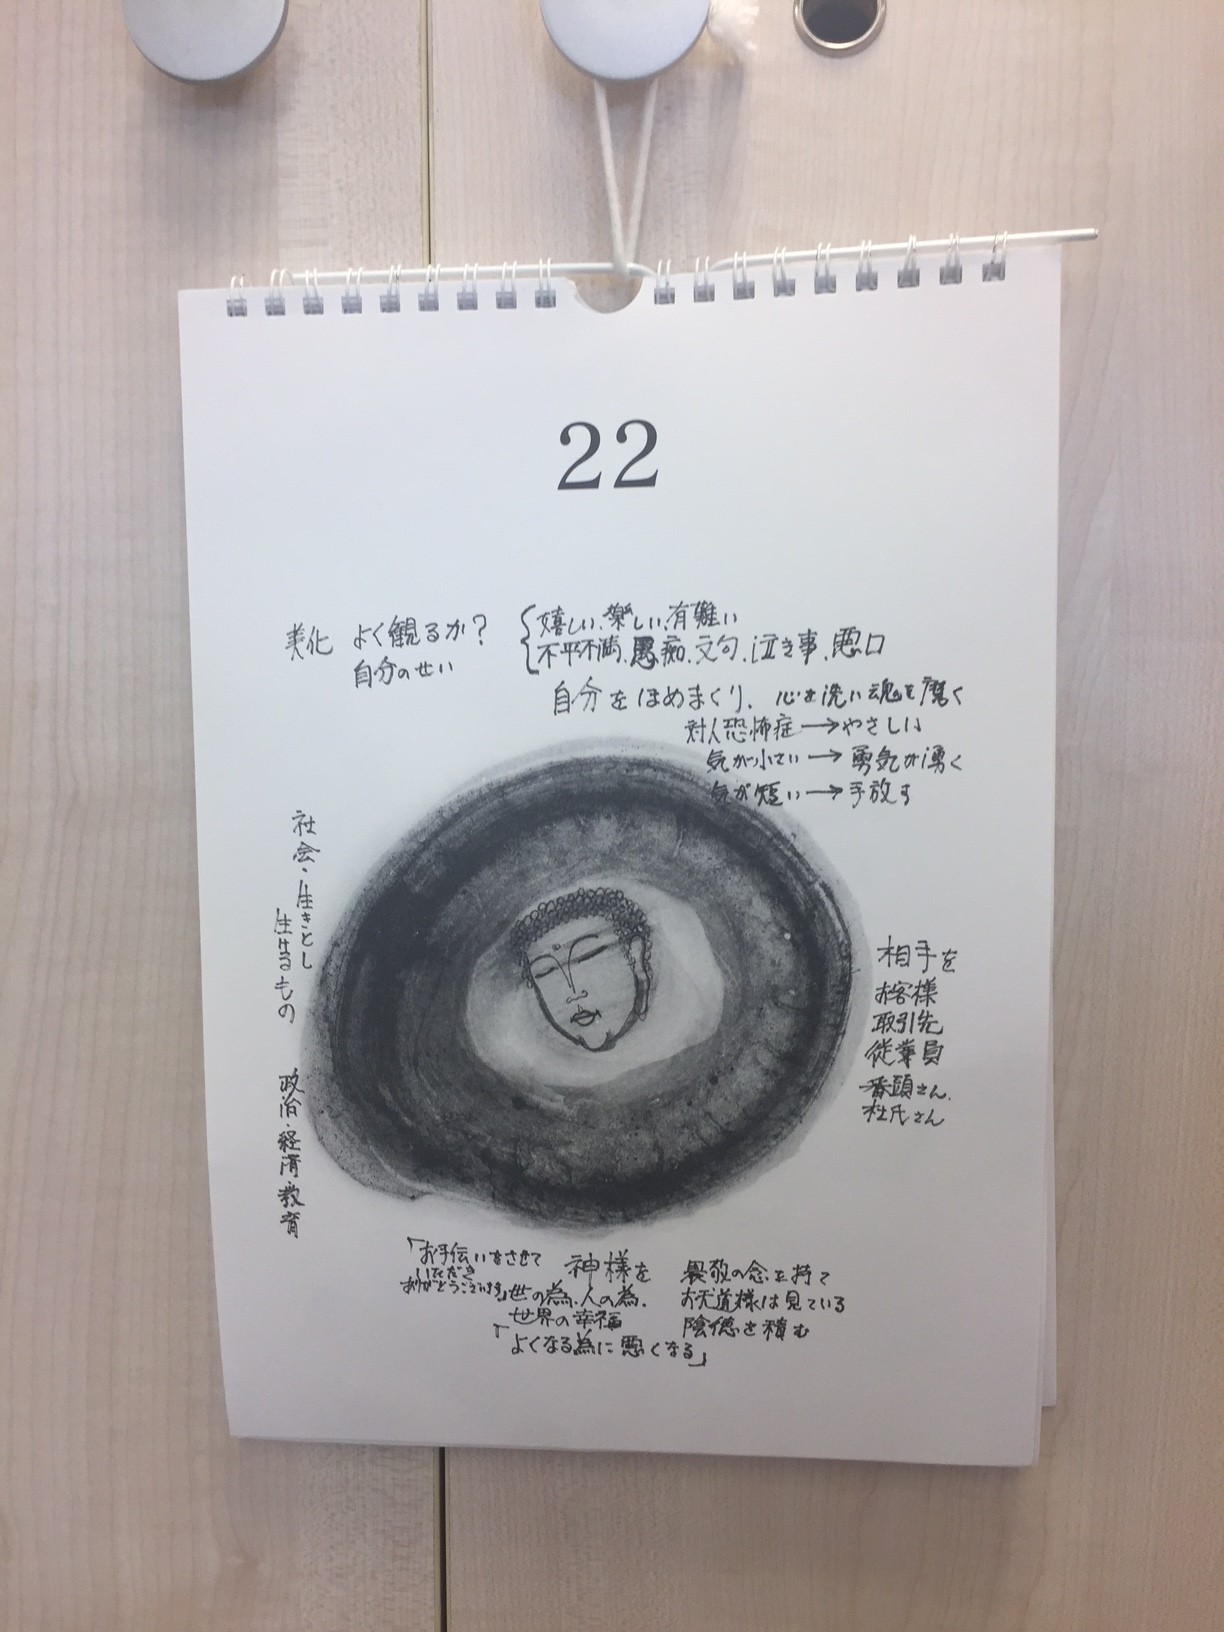 22
美化 よく観るか? 嬉しい、楽しい、有難い
自分のせい 不平不満、愚痴、文句、泣き事、悪口
自分をほめまくり、心を洗い魂を磨く
対人恐怖症→やさしい
気が小さい→勇気が湧く
気が短い→手放す
社会・生きとし
生けるもの
政治・経済・教育
相手を
お客様
取引先
従業員
番頭さん、
杜氏さん
「お手伝いをさせて
いただき
ありがとうございます」
神様を
世の為、人の為、
世界の幸福
「よくなる為に悪くなる」
畏敬の念を持て
お天道様は見ている
陰徳を積む